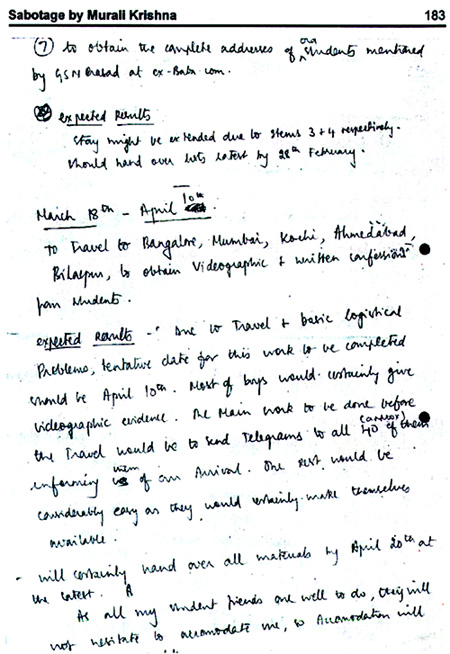 Sabotage by Murali Krishna 183
(7) to obtain the complete addresses of our students mentioned
by GSN Prasad at ex-Baba.com.
expected Results
Stay might be extended due to items 3 + 4 respectively.
should hand over lists latest by 28th February.
March 18th - April 10th.
To Travel to Bangalore, Mumbai, Kochi, Ahmedabad,
Bilaspur, to obtain Videographic + written confessions
from students.
expected Results - Due to Travel + basic logistical
Problems, tentative date for this work to be completed
should be April 10th. Most of boys would certainly give
videographic evidence. The Main work to be done before
the Travel would be to send Telegrams to all 40 (approx) of them
informing them of our Arrival. The rest would be
considerably easy as they would certainly make themselves
available.
- will certainly hand over all materials by April 20th at
the latest. A
As all my student friends are well to do, they will
not hesitate to accomodate me, so Accomodation will